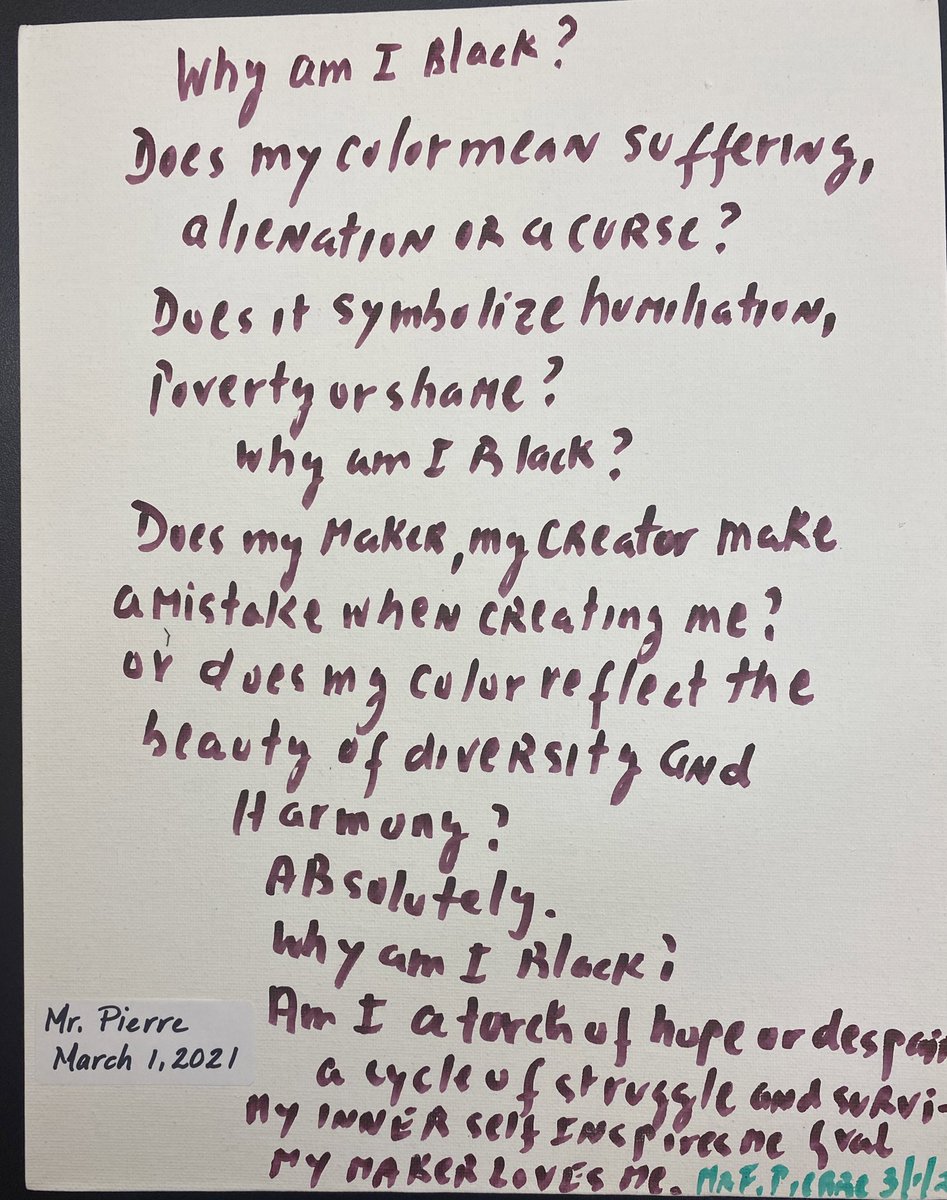 Why am I Black?
Does my color mean suffering,
alienation or a curse?
Does it symbolize humiliation,
Poverty or shame?
Why am I Black?
Does my Maker, my Creator make
a mistake when creating me?
or does my color reflect the
beauty of diversity and
Harmony?
ABsolutely.
Why am I Black?
Am I a torch of hope or despair
a cycle of struggle and survi-
My inner self inspires me val
My Maker loves me. Mr F. Pierre 3/1/2
Mr. Pierre
March 1, 2021